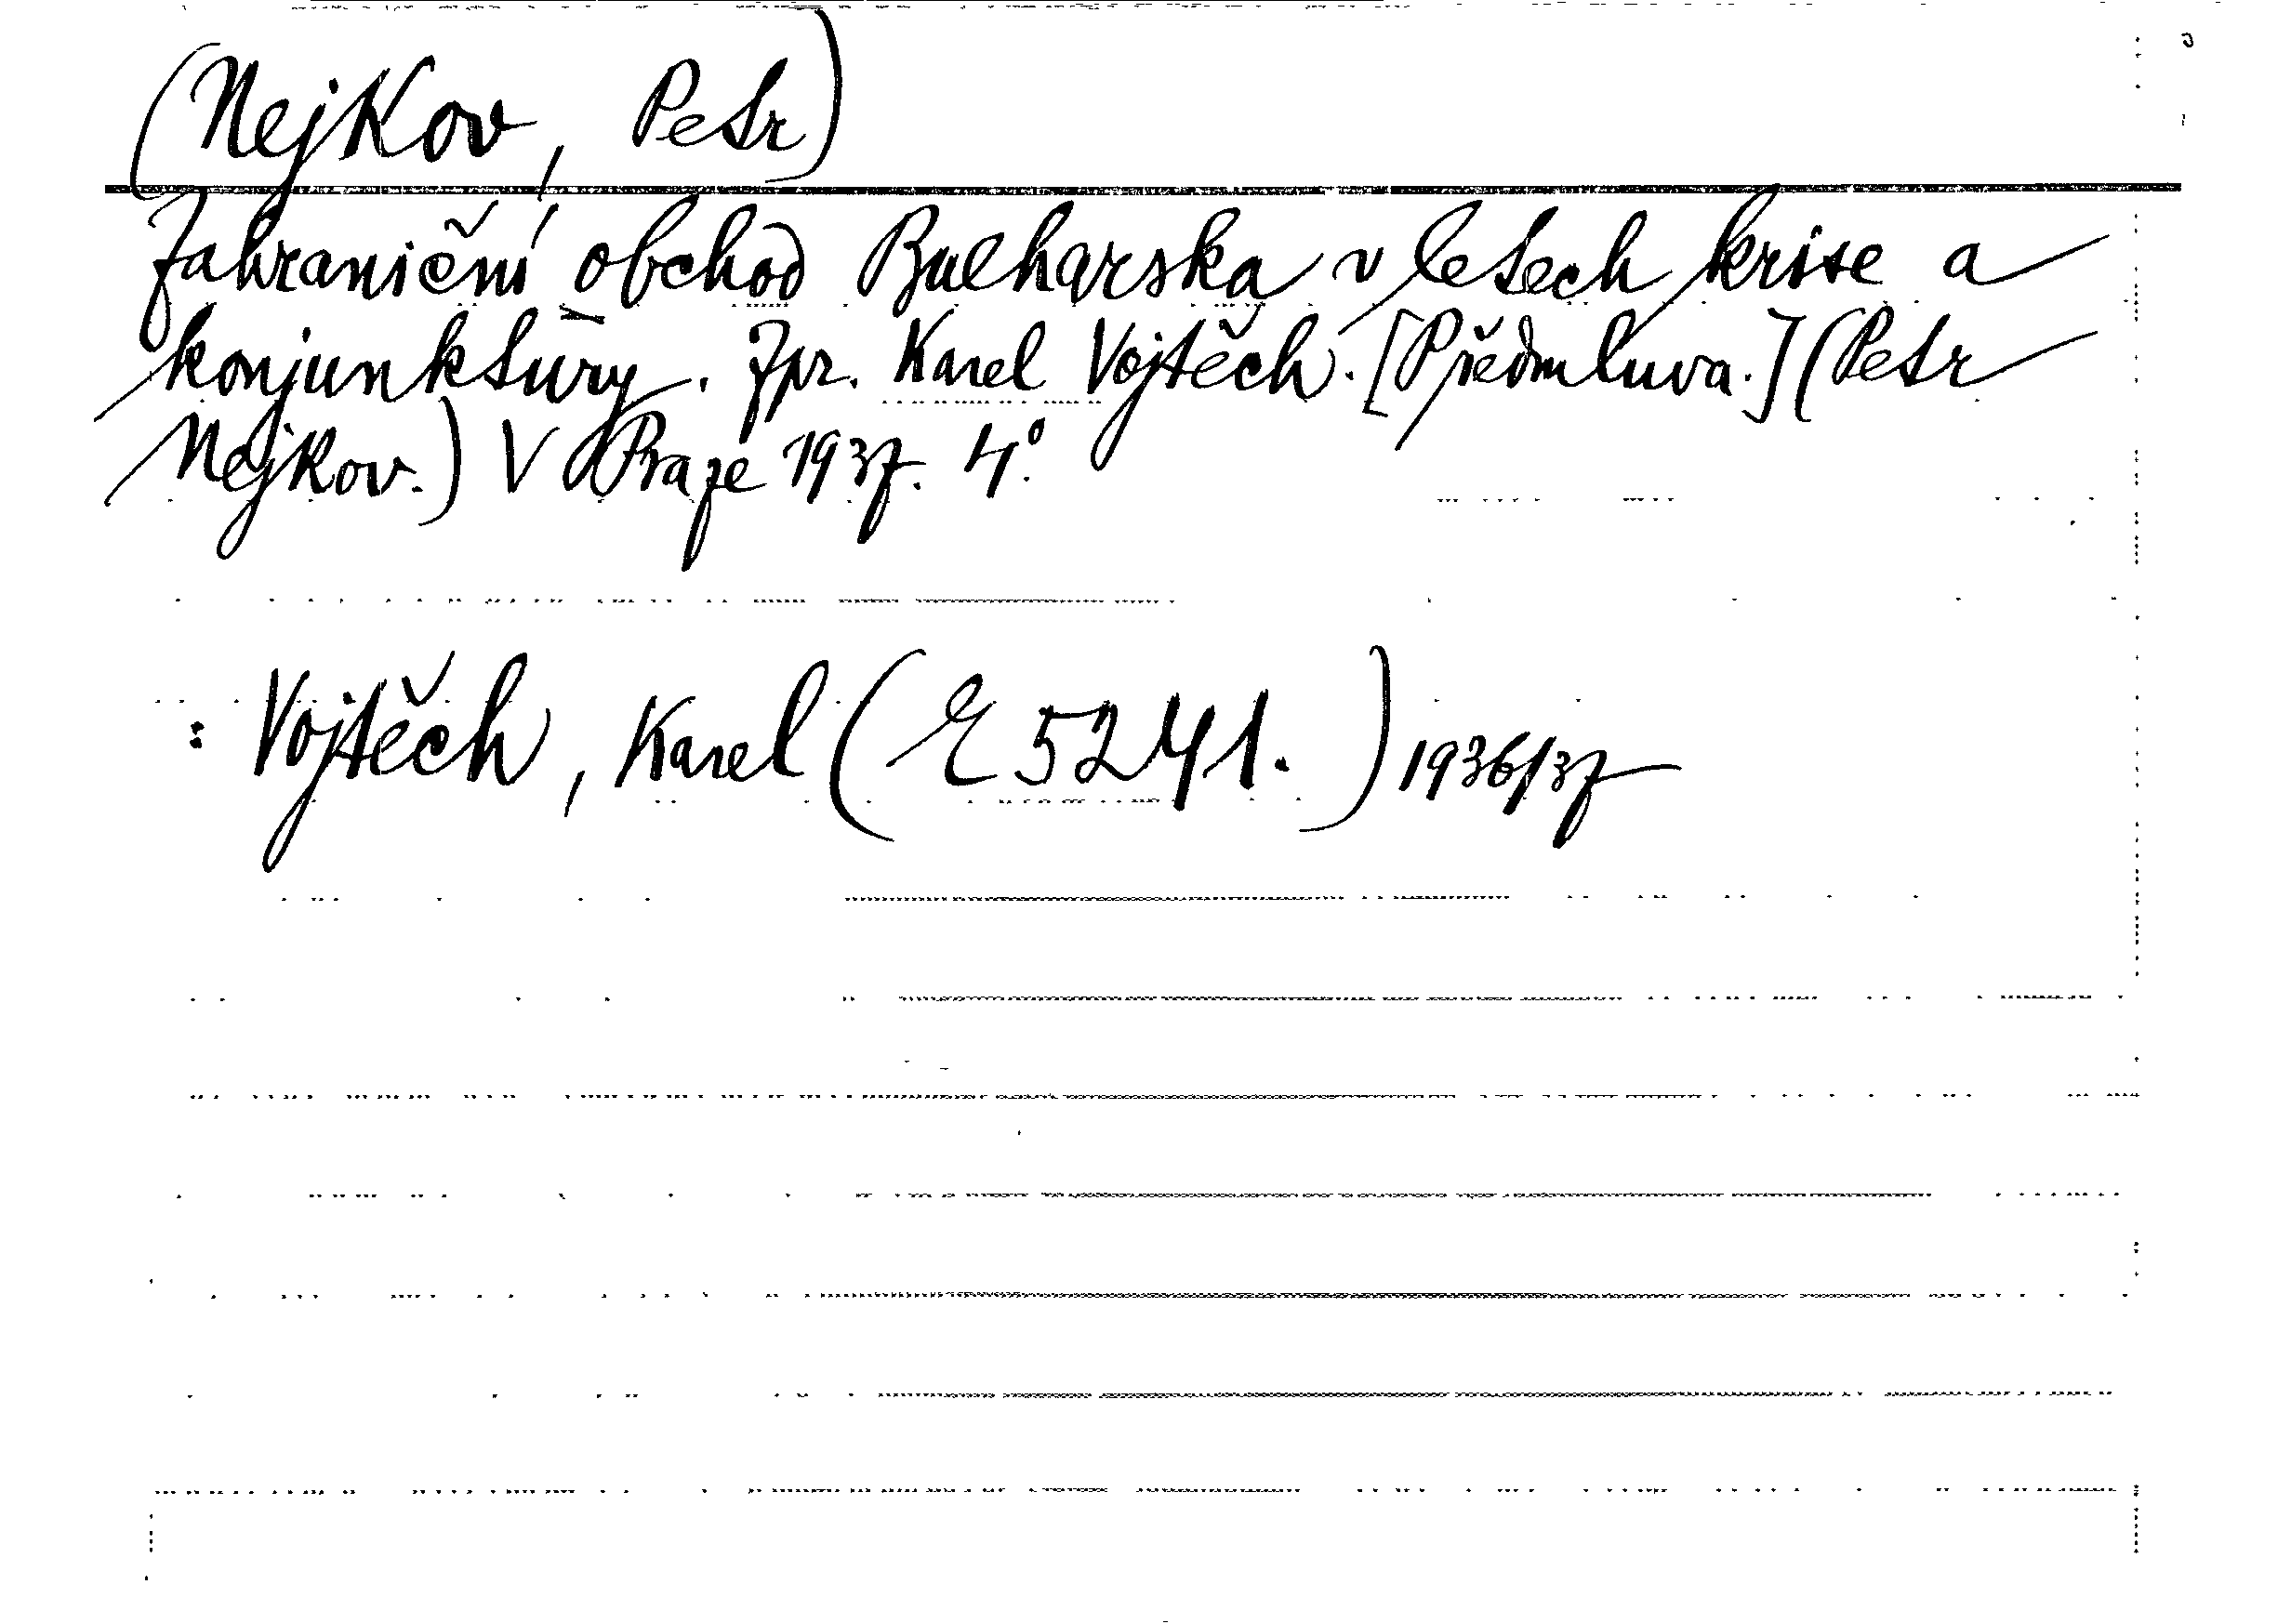 (Nejkov, Petr)
Zahraniční obchod Bulharska v letech krise a
konjunktury. Zpr. Karel Vojtěch. [Předmluva.] (Petr
Nejkov.) V Praze 1937. 4°.
: Vojtěch, Karel (E 5241.) 1936/37